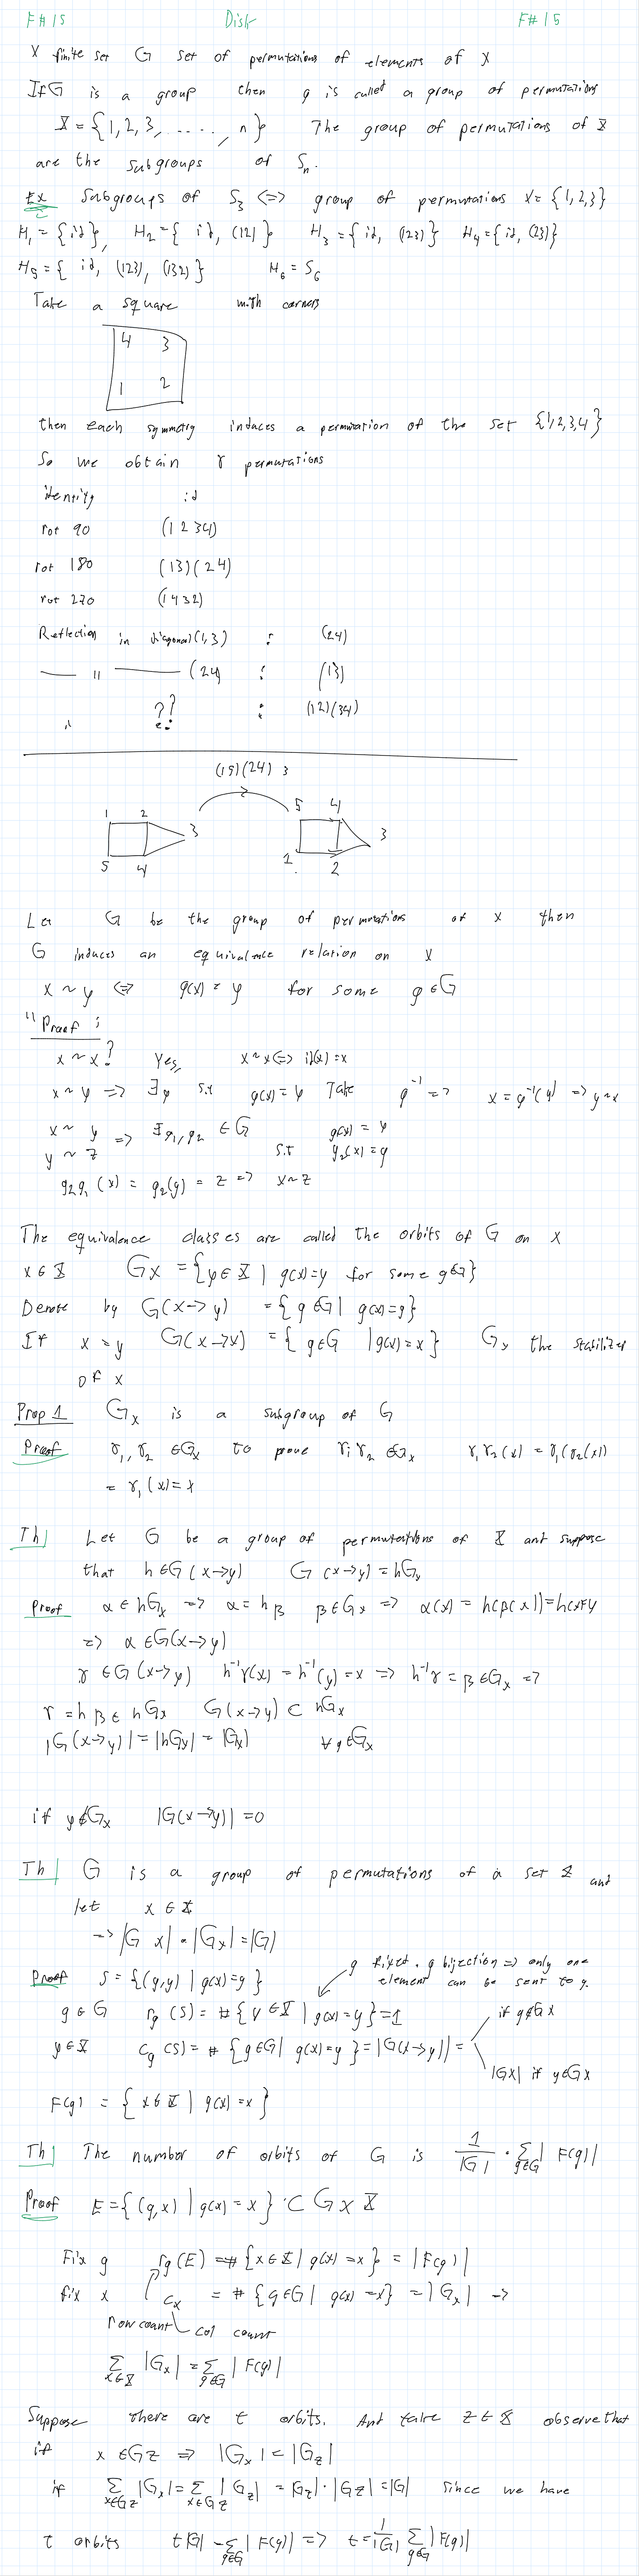 F#15 Disk F#15
X finite set G set of permutations of elements of X
If G is a group then g is called a group of permutations
X = {1, 2, 3, ....., n} The group of permutations of X
are the subgroups of Sn.
Ex Subgroups of S3 <=> group of permutations X = {1,2,3}
H1 = {id}, H2 = { id, (12)} H3 = {id, (23)} H4 = {id, (23)}
H5 = { id, (123), (132) } H6 = S6
Take a square with corners
4 3
1 2
then each symmetry induces a permutation of the set {1,2,3,4}
So we obtain 8 permutations
identity id
rot 90 (1 2 34)
rot 180 (13)(24)
rot 270 (1432)
Reflection in diagonal (1,3) : (24)
— " — (24) : (13)
" ?? : (12)(34)
(15)(24) 3
1 2 3 5 4
5 4 1 2 3
Let G be the group of permutations of X then
G induces an equivalence relation on X
x ~ y <=> g(x) = y for some g ∈ G
"Proof :
x ~ x? Yes, x ~ x <=> id(x) = x
x ~ y => ∃g s.t g(x) = y Take g⁻¹ => x = g⁻¹(y) => y ~ x
x ~ y => ∃ g1, g2 ∈ G g(x) = y
y ~ z s.t g2(x) = y
g2g1(x) = g2(y) = z => x ~ z
The equivalence classes are called the orbits of G on X
x ∈ X Gx = {y ∈ X | g(x) = y for some g ∈ G}
Denote by G(x→y) = { g ∈ G | g(x) = y}
If x = y G(x→x) = { g ∈ G | g(x) = x} Gx the stabilizer
of x
Prop 1 Gx is a subgroup of G
Proof γ1, γ2 ∈ Gx to prove γ1γ2 ∈ Gx γ1γ2(x) = γ1(γ2(x))
= γ1(x) = x
Th Let G be a group of permutations of X and suppose
that h ∈ G(x→y) G(x→y) = hGx
Proof α ∈ hGx => α = hβ β ∈ Gx => α(x) = h(β(x)) = h(x) = y
=> α ∈ G(x→y)
γ ∈ G(x→y) h⁻¹γ(x) = h⁻¹(y) = x => h⁻¹γ = β ∈ Gx =>
γ = hβ ∈ hGx G(x→y) ⊂ hGx
|G(x→y)| = |hGx| = |Gx| ∀ y ∈ Gx
if y ∉ Gx |G(x→y)| = 0
Th G is a group of permutations of a set X and
let x ∈ X
→ |G x| · |Gx| = |G|
g fixed. g bijection => only one
Proof S = {(g,y) | g(x) = y} element can be sent to y.
g ∈ G rg(S) = # {y ∈ X | g(x) = y} = 1 if y ∉ Gx
y ∈ X cy(S) = # {g ∈ G | g(x) = y} = |G(x→y)| =
|Gx| if y ∈ Gx
F(g) = { x ∈ X | g(x) = x}
Th The number of orbits of G is 1/|G| · ∑g∈G |F(g)|
Proof E = {(g,x) | g(x) = x} ⊂ G x X
Fix g rg(E) = # {x ∈ X | g(x) = x} = |F(g)|
fix x cx = # {g ∈ G | g(x) = x} = |Gx| →
row count col count
∑x∈X |Gx| = ∑g∈G |F(g)|
Suppose there are t orbits. And take z ∈ X observe that
if x ∈ Gz => |Gx| = |Gz|
if ∑x∈Gz |Gx| = ∑x∈Gz |Gz| = |Gz| · |Gz| = |G| since we have
t orbits t|G| = ∑g∈G |F(g)| => t = 1/|G| ∑g∈G |F(g)|